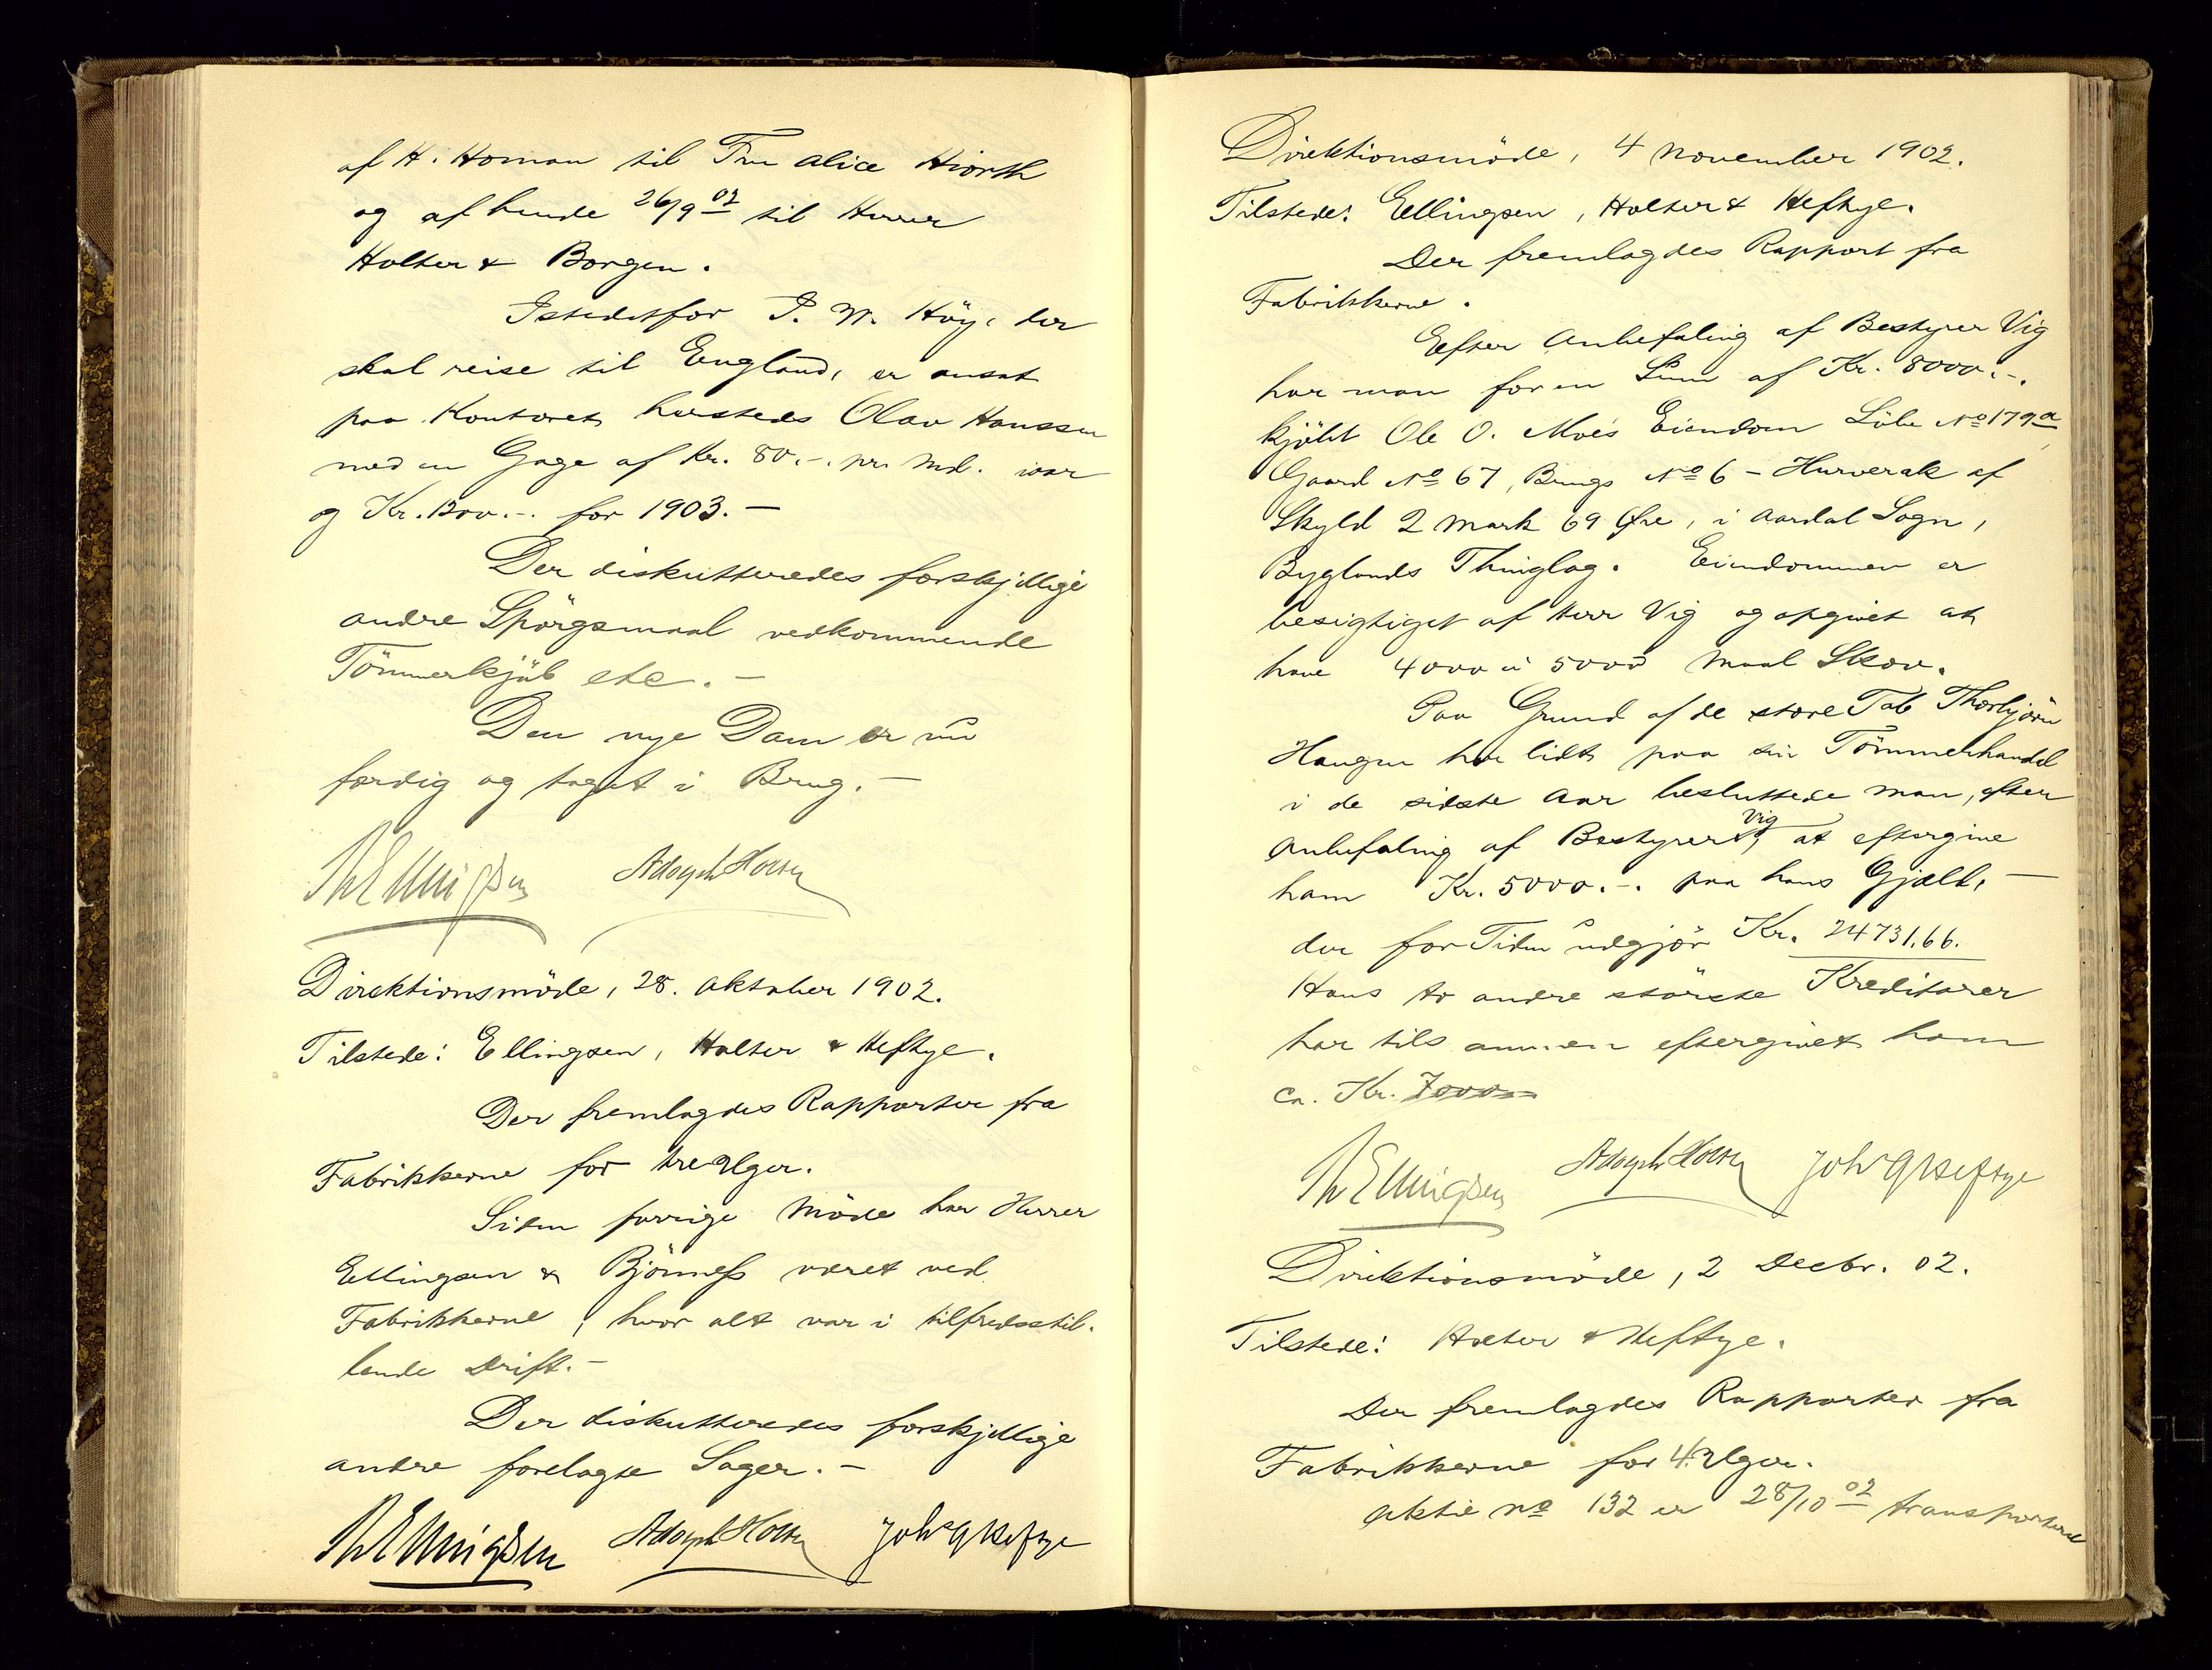 af H. Homan til Fru Alice Hiorth
og af hende 26/9 02 til Herrer
Holter & Borgen.
Istedetfor P. W. Höy, der
skal reise til England, er ansat
paa Kontoret hersteds Olav Hanssen
med en Gage af Kr. 80.-. pr. Md. iaar
og Kr. 1200.-. for 1903. -
Der diskutteredes forskjellige
andre Spörgsmaal vedkommende
Tömmerkjöb etc. -
Den nye Dam er nu
færdig og taget i Brug. -
Th Ellingsen Adolph Holter
Direktionsmöde, 28. Oktober 1902.
Tilstede: Ellingsen, Holter & Heftye.
Der fremlagdes Rapporter fra
Fabrikkerne for tre Uger.
Siden forrige Möde har Herrer
Ellingsen & Björness været ved
Fabrikkerne, hvor alt var i tilfredsstil-
lende Drift. -
Der diskutteredes forskjellige
andre forelagte Sager. -
Th Ellingsen Adolph Holter Joh Heftye
Direktionsmöde, 4 November 1902.
Tilstede: Ellingsen, Holter & Heftye.
Der fremlagdes Rapport fra
Fabrikkerne.
Efter Anbefaling af Bestyrer Vig
har man for en Sum af Kr. 8000.-.
kjöbt Ole O. Moes Eiendom Löbe No 179a,
Gaard No 67, Brugs No 6 - Hurverak af
Skyld 2 Mark 69 Øre, i Aardal Sogn,
Byglands Thinglag. Eiendommen er
besigtiget af Herr Vig og opgivet at
have 4000 à 5000 Maal Skov.
Paa Grund af de store Tab Thorbjörn
Haugen har lidt paa sin Tömmerhandel
i de sidste Aar besluttede man, efter
Anbefaling af Bestyrer Vig, at eftergive
ham Kr. 5000.-. paa hans Gjæld, -
der for Tiden udgjör Kr. 24731.66.
Hans to andre störste Kreditorer
har tilsammen eftergivet ham
ca. Kr. 7000
Th Ellingsen Adolph Holter Joh Heftye
Direktionsmöde, 2 Decbr. 02.
Tilstede: Holter & Heftye.
Der fremlagdes Rapporter fra
Fabrikkerne for 4 Uger.
Aktie No 132 er 28/10 02 transporteret